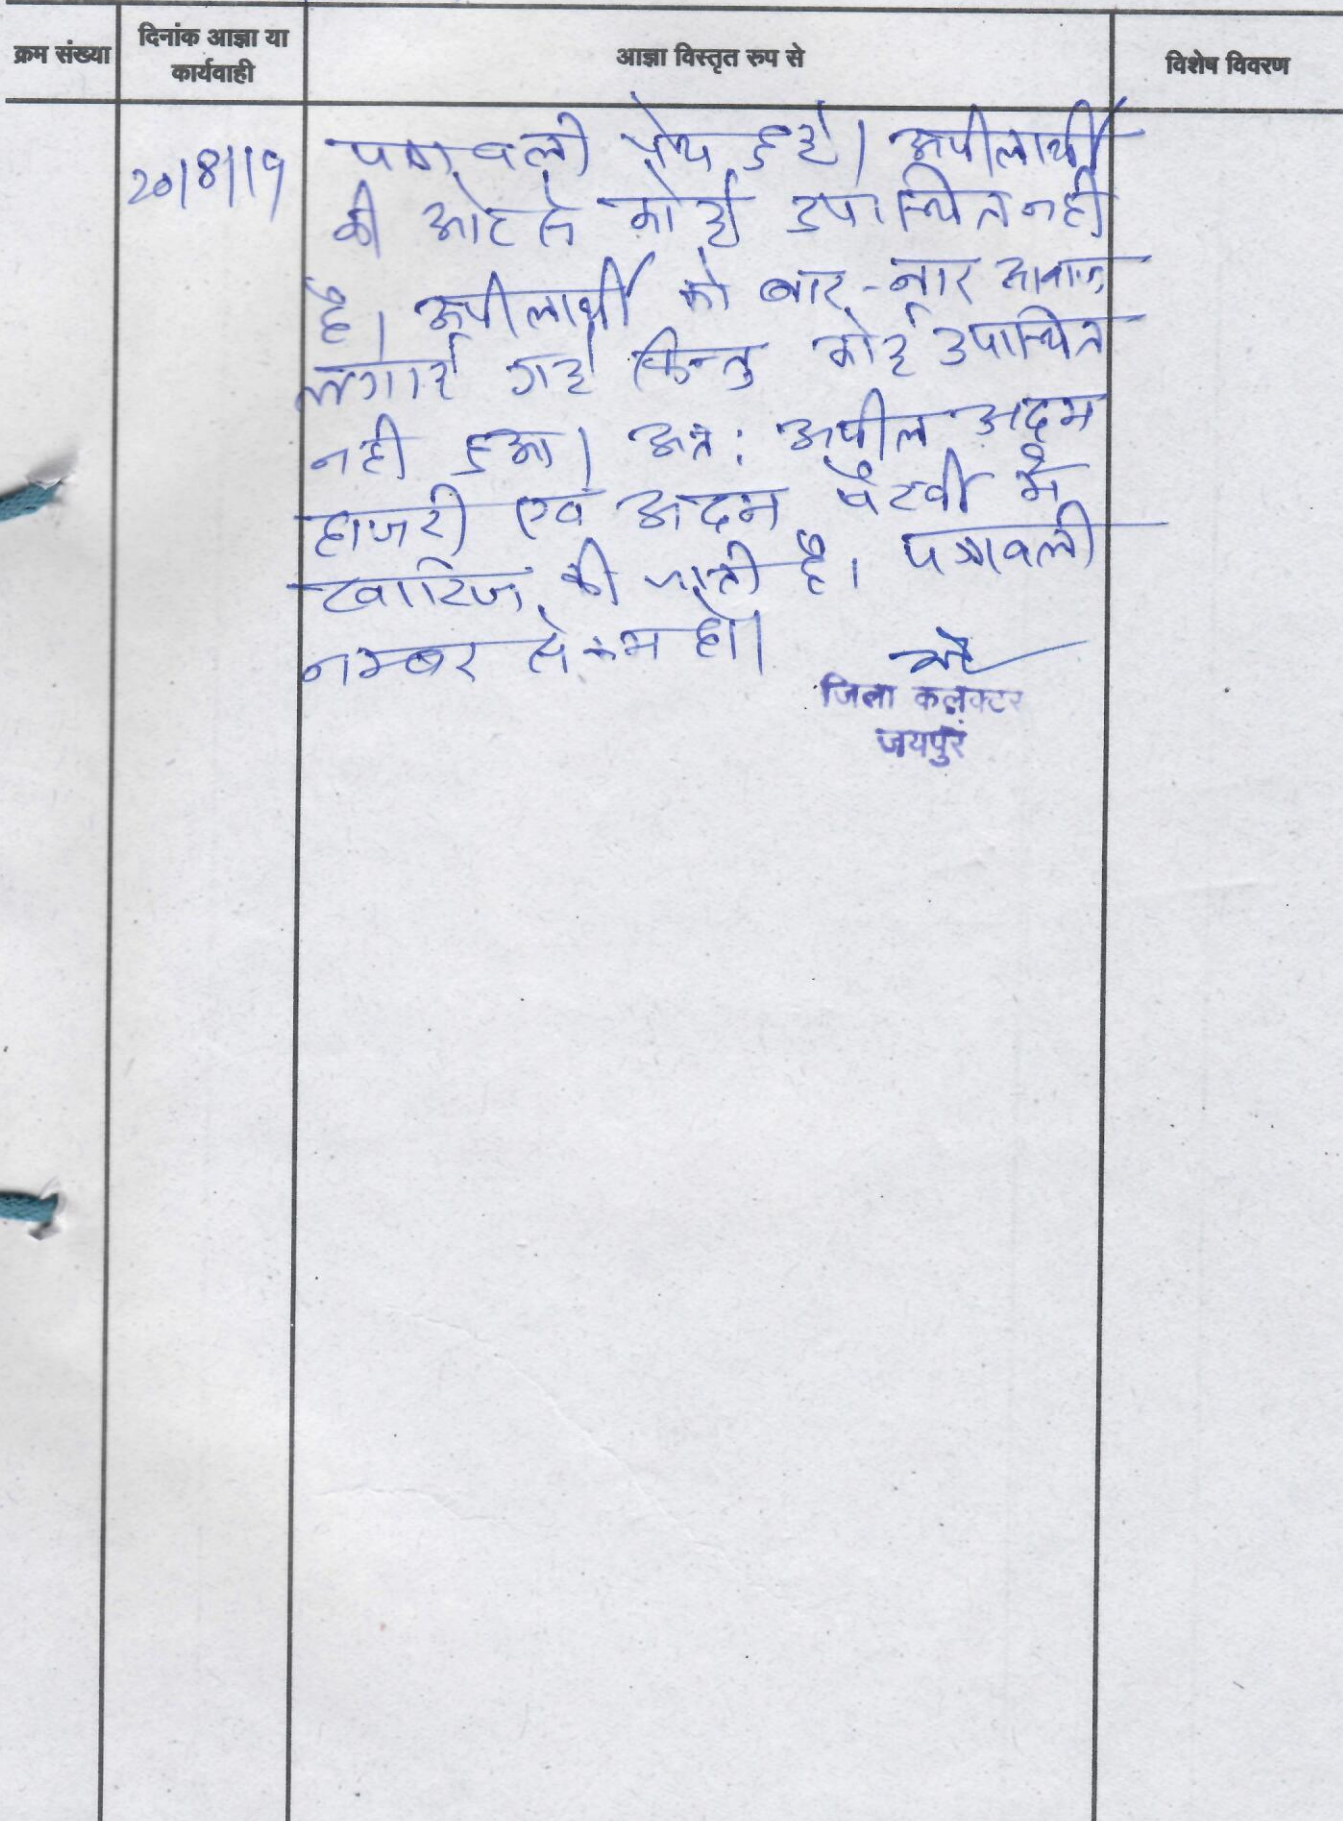 क्रम संख्या
दिनांक आज्ञा या
कार्यवाही
आज्ञा विस्तृत रुप से
विशेष विवरण
20/8/19
पत्रावली पेश हुई। अपीलार्थी
की ओर से कोई उपस्थित नही
है। अपीलार्थी को बार-बार आवाज
लगाई गई किन्तु कोई उपस्थित
नही हुआ। अत: अपील अदम
हाजरी एवं अदम पैरवी में
खारिज की जाती है। पत्रावली
नम्बर से कम हो।
जिला कलक्टर
जयपुर